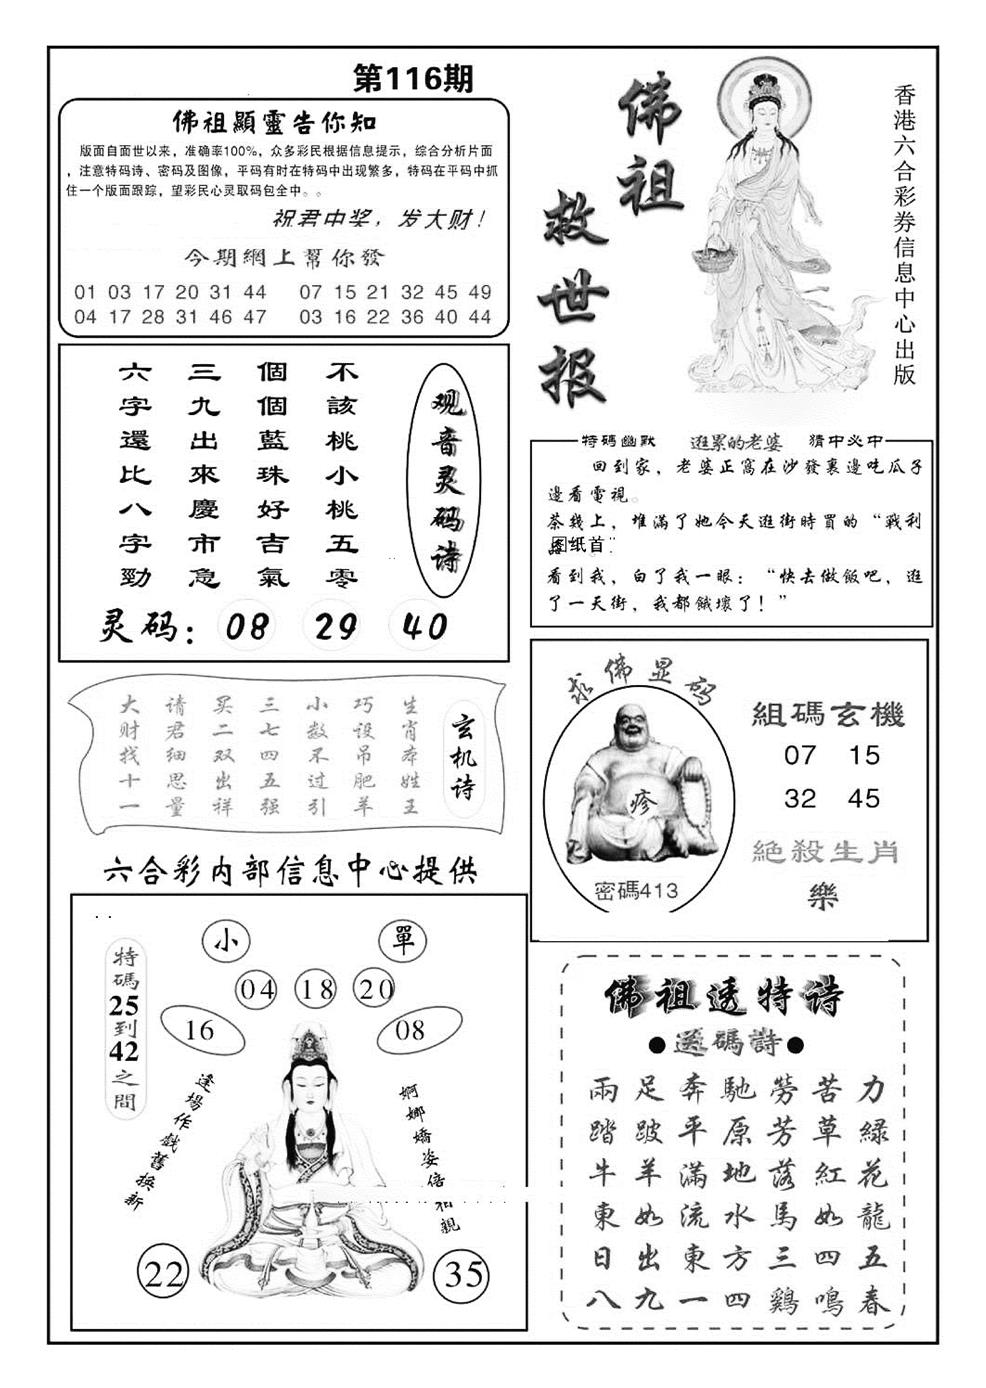 第116期
佛祖顯靈告你知
版面自面世以来，准确率100%，众多彩民根据信息提示，综合分析片面
，注意特码诗、密码及图像，平码有时在特码中出现繁多，特码在平码中抓
住一个版面跟踪，望彩民心灵取码包全中。。
祝君中奖，发大财！
今期網上幫你發
01 03 17 20 31 44 07 15 21 32 45 49
04 17 28 31 46 47 03 16 22 36 40 44
佛祖
救世报
香港六合彩券信息中心出版
观音灵码诗
不該桃小桃五零
個個藍珠好吉氣
三九出來慶市急
六字還比八字勁
灵码：08 29 40
特碼幽默 逛累的老婆 猜中必中
回到家，老婆正窩在沙發裏邊吃瓜子
邊看電視。
茶幾上，堆滿了她今天逛街時買的“戰利
图纸首"
看到我，白了我一眼：“快去做飯吧，逛
了一天街，我都餓壞了！”
玄机诗
生肖本姓王
巧设吊肥羊
小数不过引
三七四五强
买二双出祥
请君细思量
大财找十一
求佛显码
疹
密碼413
組碼玄機
07 15
32 45
絕殺生肖
樂
六合彩内部信息中心提供
小 單
04 18 20
16 08
特碼25到42之間
逢場作戲舊換新
婀娜嬌姿倍相親
22 35
佛祖透特诗
●送碼詩●
兩足奔馳勞苦力
踏跛平原芳草綠
牛羊滿地落紅花
東如流水馬如龍
日出東方三四五
八九一四鷄鳴春